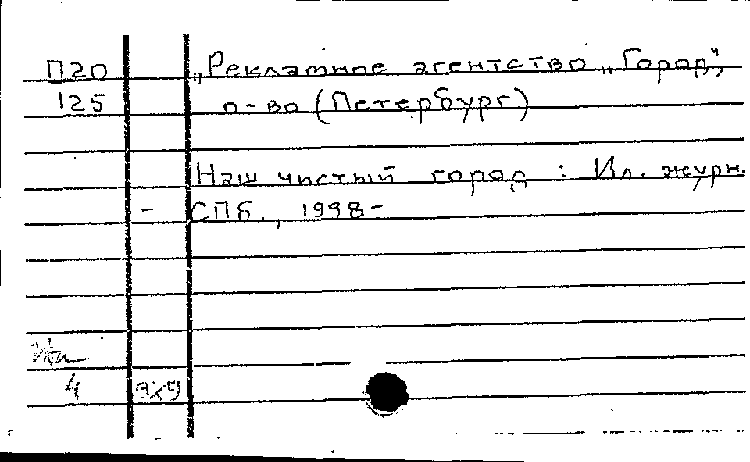 П20 „Рекламное агентство „Город",
125 о-во (Петербург)
Наш чистый город : Ил. журн.
- СПб., 1998-
4